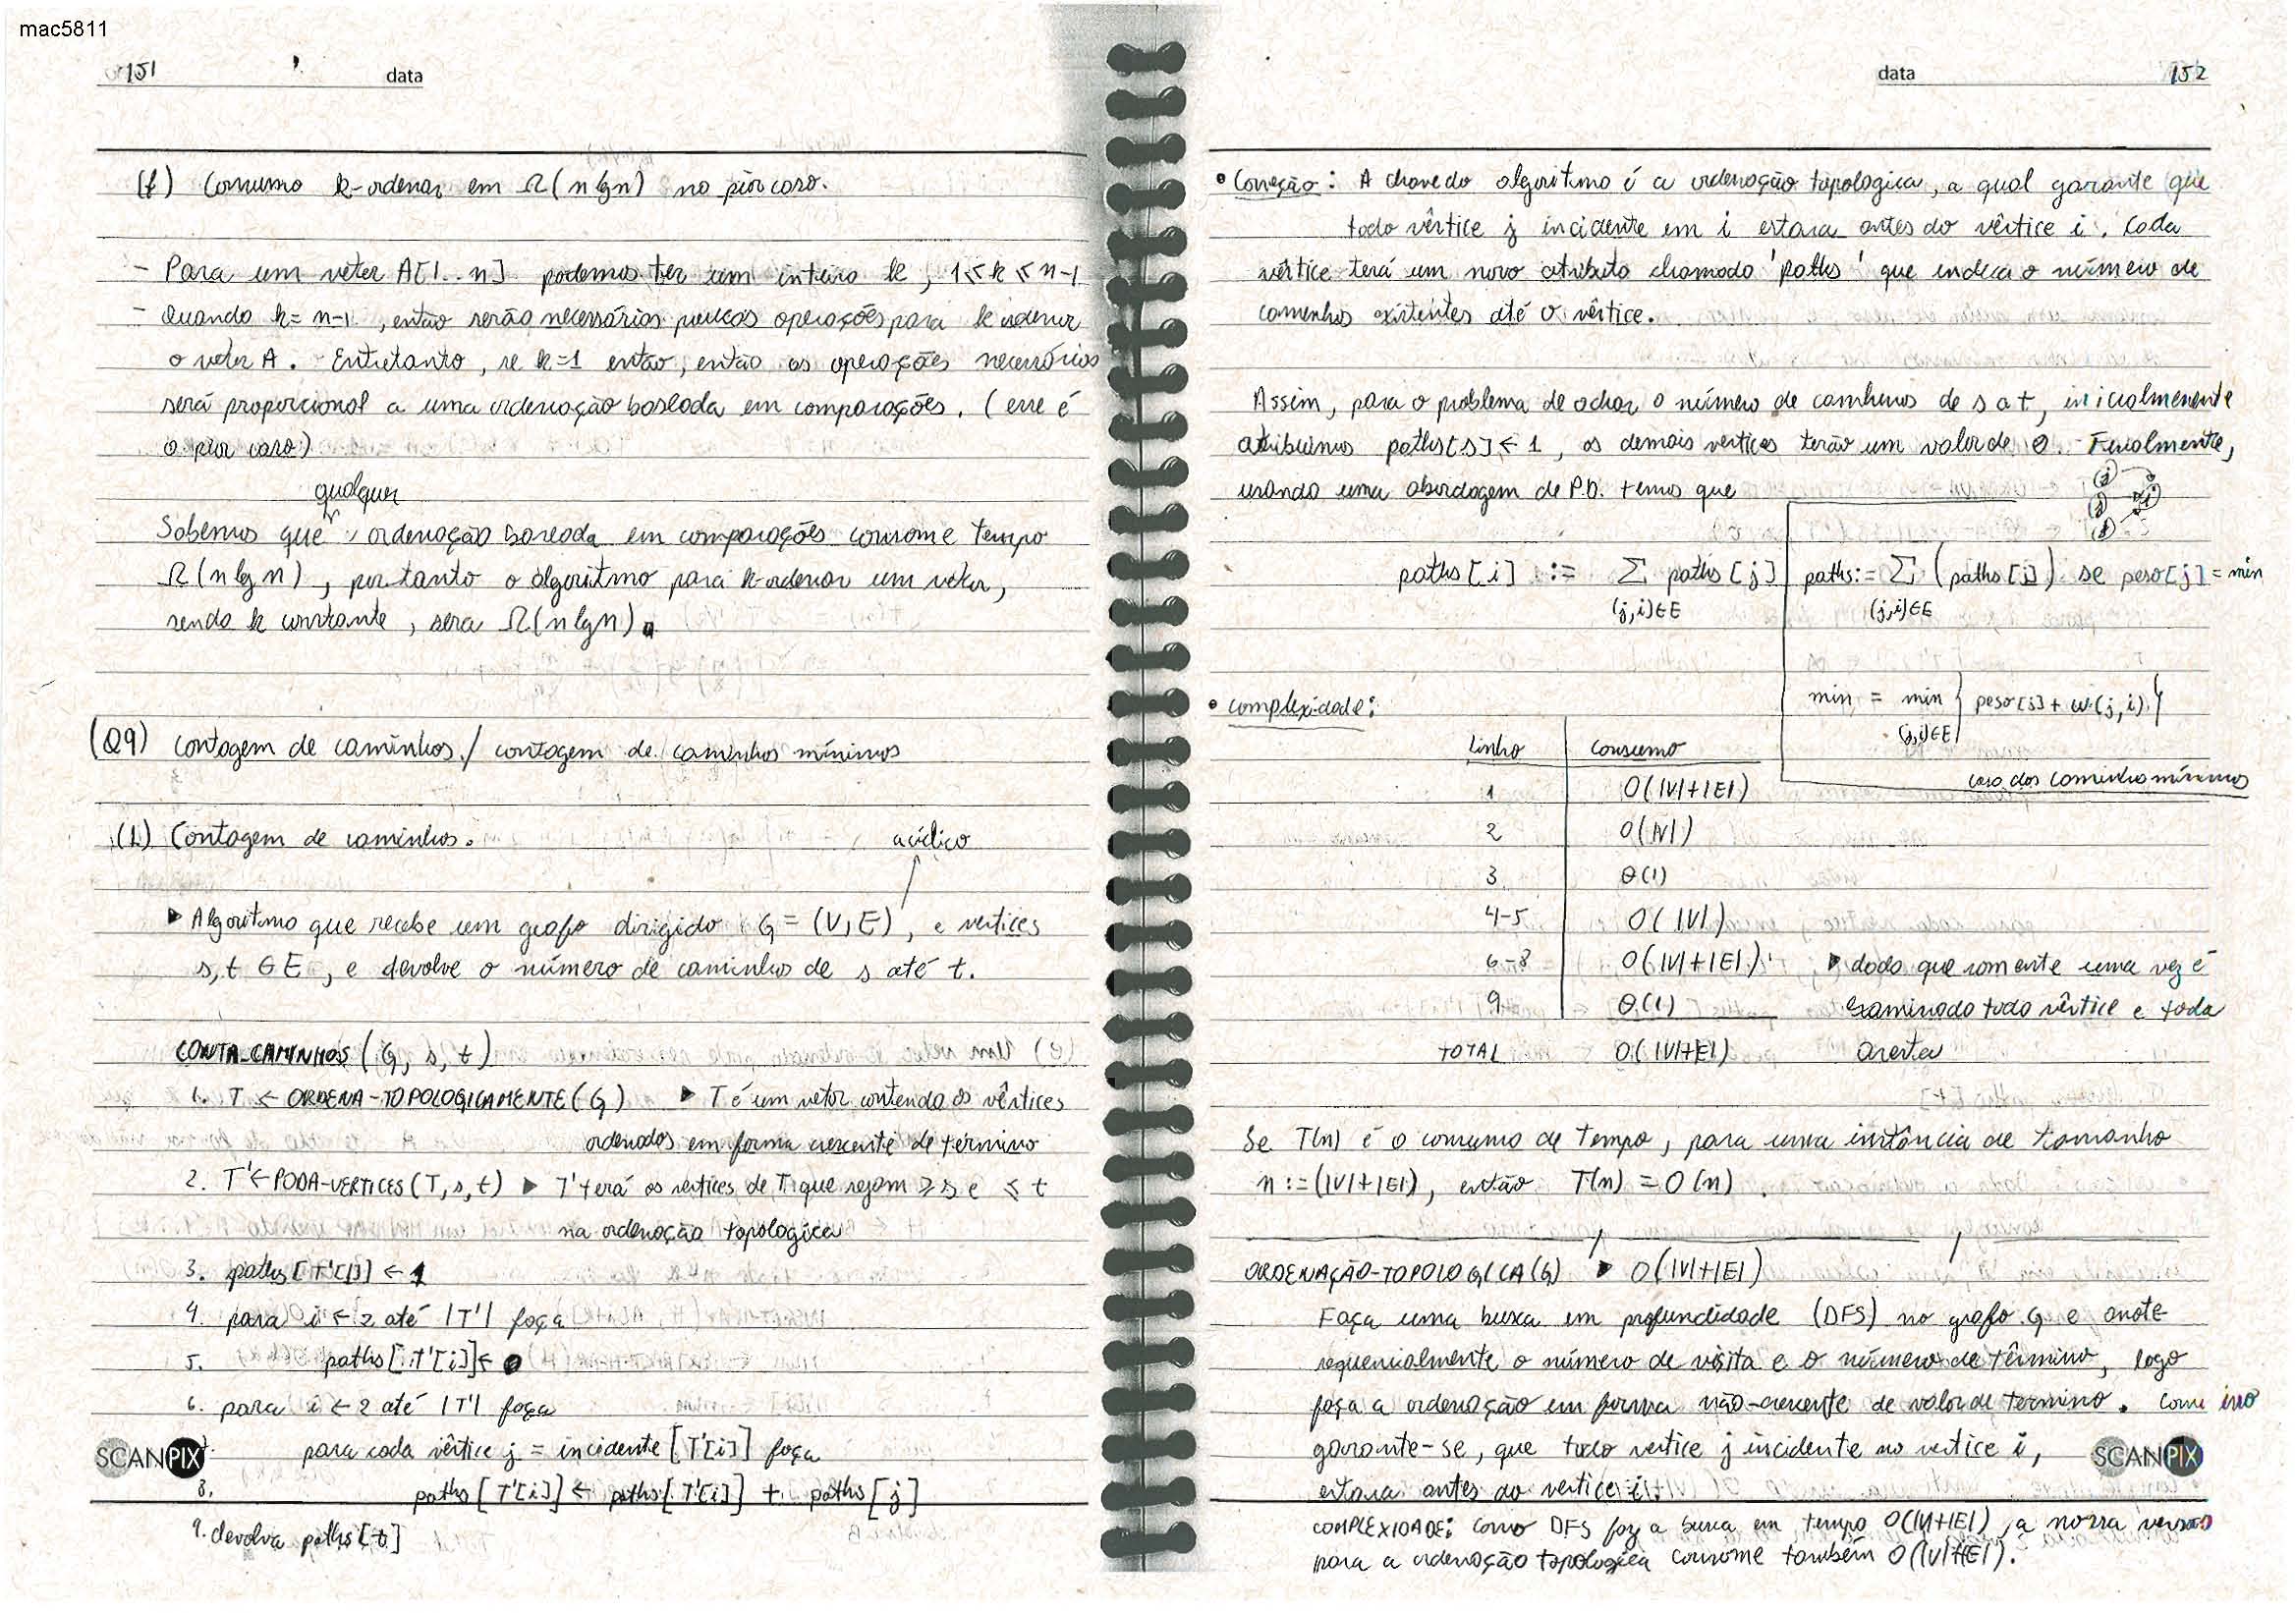 mac5811
151 data
(f) Consumo k-ordenar em Ω(n lg n) no pior caso.
- Para um vetor A[1..n] podemos ter um inteiro k, 1≤k≤n-1
- Quando k=n-1, então serão necessários poucas operações para k ordenar
o vetor A. Entretanto, se k=1 então, então as operações necessários
será proporcional a uma ordenação baseada em comparações. (esse é
o pior caso)
qualquer
Sabemos que ordenação baseada em comparações consome tempo
Ω(n lg n), portanto o algoritmo para k-ordenar um vetor,
sendo k constante, sera Ω(n lg n)
(Q9) contagem de caminhos / contagem de caminhos mínimos
(1) Contagem de caminhos.
acíclico
▶ Algoritmo que recebe um grafo dirigido G=(V,E), e vertices
s,t ∈ E, e devolve o número de caminhos de s até t.
CONTA_CAMINHOS(G, s, t)
1. T ← ORDENA-TOPOLOGICAMENTE(G) ▶ T é um vetor contendo os vêrtices
ordenados em forma crescente de término
2. T' ← PODA-VERTICES(T, s, t) ▶ T' terá os vértices de T que sejam ≥ s e ≤ t
na ordenação topologica
3. paths[T'[1]] ← 1
4. para i ← 2 até |T'| faça
5. paths[T'[i]] ← 0
6. para i ← 2 até |T'| faça
7. para cada vêrtice j = incidente[T'[i]] faça
8. paths[T'[i]] ← paths[T'[i]] + paths[j]
9. devolva paths[t]
SCANPIX
data 152
• Correção: A chave do algoritmo é a ordenação topologica, a qual garante que
todo vêrtice j incidente em i estara antes do vêrtice i. Cada
vêrtice terá um novo atributo chamado 'paths' que indica o número de
caminhos existentes até o vêrtice.
Assim, para o problema de achar o número de caminhos de s a t, inicialmenente
atribuimos paths[s] ← 1, os demais vertices terão um valor de 0. Finalmente,
usando uma abordagem de P.D. temos que
j
j
j
i
paths[i] := Σ paths[j]
(j,i)∈E
paths := Σ (paths[j]) se peso[j] = min
(j,i)∈E
min = min { peso[j] + w(j,i) }
(j,i)∈E
caso dos caminhos mínimos
• complexidade:
Linha consumo
1 O(|V|+|E|)
2 O(|V|)
3 Θ(1)
4-5 O(|V|)
6-8 O(|V|+|E|) ▶ dado que somente uma vez é
9 Θ(1) examinado todo vêrtice e toda
TOTAL O(|V|+|E|) aresta
Se T(n) é o consumo de tempo, para uma instância de tamanho
n := (|V|+|E|), então T(n) = O(n).
ORDENAÇÃO-TOPOLOGICA(G) ▶ O(|V|+|E|)
Faça uma busca em profundidade (DFS) no grafo G e anote
sequencialmente o número de visita e o número de término, logo
faça a ordenação em forma não-crescente de valor de termino. Com isso
garante-se, que todo vertice j incidente no vertice i,
estara antes do vertice i.
COMPLEXIDADE: Como DFS faz a busca em tempo O(|V|+|E|), a nossa versão
para a ordenação topologica consome também O(|V|+|E|).
SCANPIX